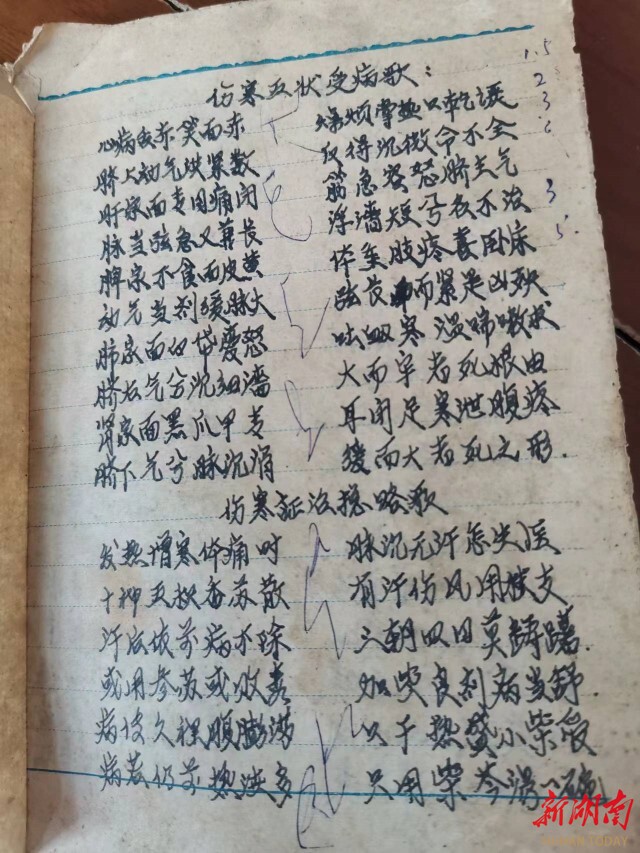 伤寒五状受病歌：
心病舌赤笑面赤 燥烦掌热口乾谈
脐上动气洪紧数 反得沉微命不全
肝家面青目痛闭 筋急多怒脐左气
脉当弦急又兼长 浮濇短兮必不治
脾家不食面皮黄 体重肢疼喜卧床
动气当剂缓脉大 弦长而紧是凶殃
肺家面白带忧怒 吐血寒温喘嗽状
脐右气兮沉细濇 大而牢者死根由
肾家面黑爪甲青 耳闭足寒泄腹疼
脐下气兮脉沉滑 缓而大者死之形.
伤寒证治总略歌
发热憎寒体痛时 脉沉无汗怎失医
十神五积香苏散 有汗伤风用桂支
汗后依前病不除 三朝四日莫踌躇.
或用参苏或败毒 加柴良剂病当舒.
病后久裡腹膨满 只干热盛小柴
病若仍前热泱多 只用柴苓汤一碗
1.5
2
3
3
5
新湖南